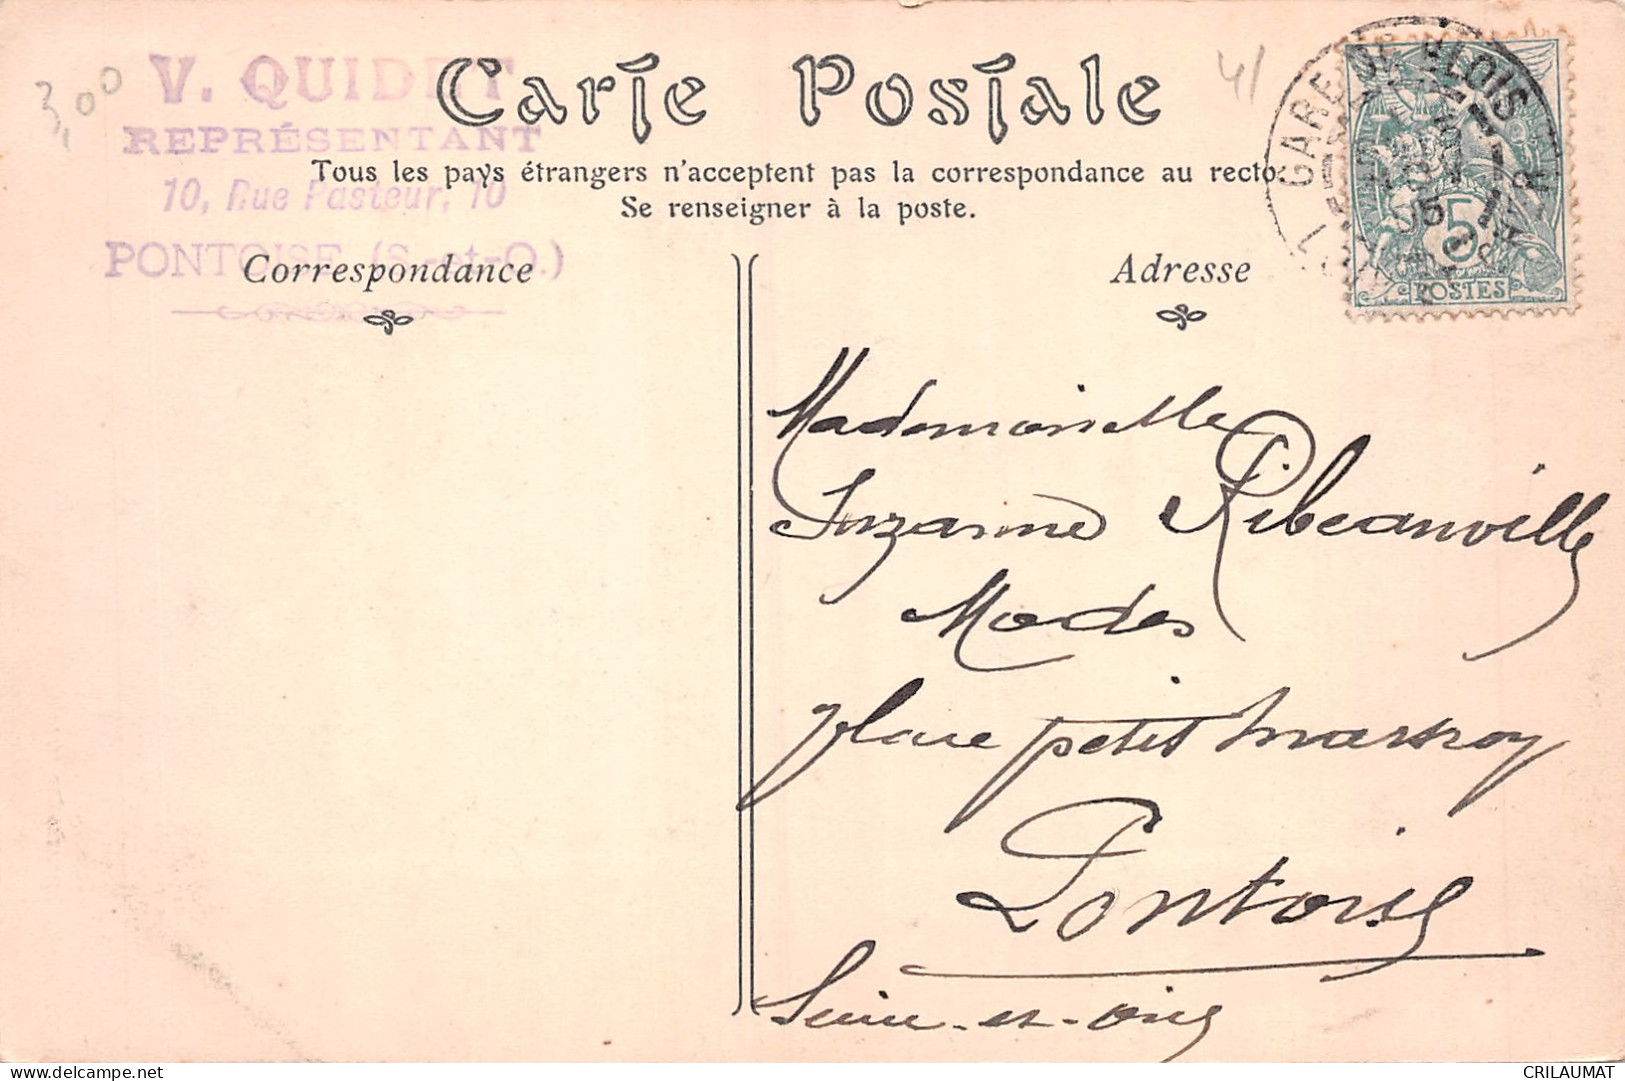 3,00
V. QUIDET
REPRÉSENTANT
10, Rue Pasteur, 10
PONTOISE (S.-et-O.)
Carte Postale
41
GARE DE BLOIS
LOIR
05
5
POSTES
Tous les pays étrangers n'acceptent pas la correspondance au recto.
Se renseigner à la poste.
Correspondance
Adresse
Mademoiselle
Suzanne Ribeauville
Modes
place petit martroy
Pontoise
Seine-et-oise
delcampe.net
CRILAUMAT